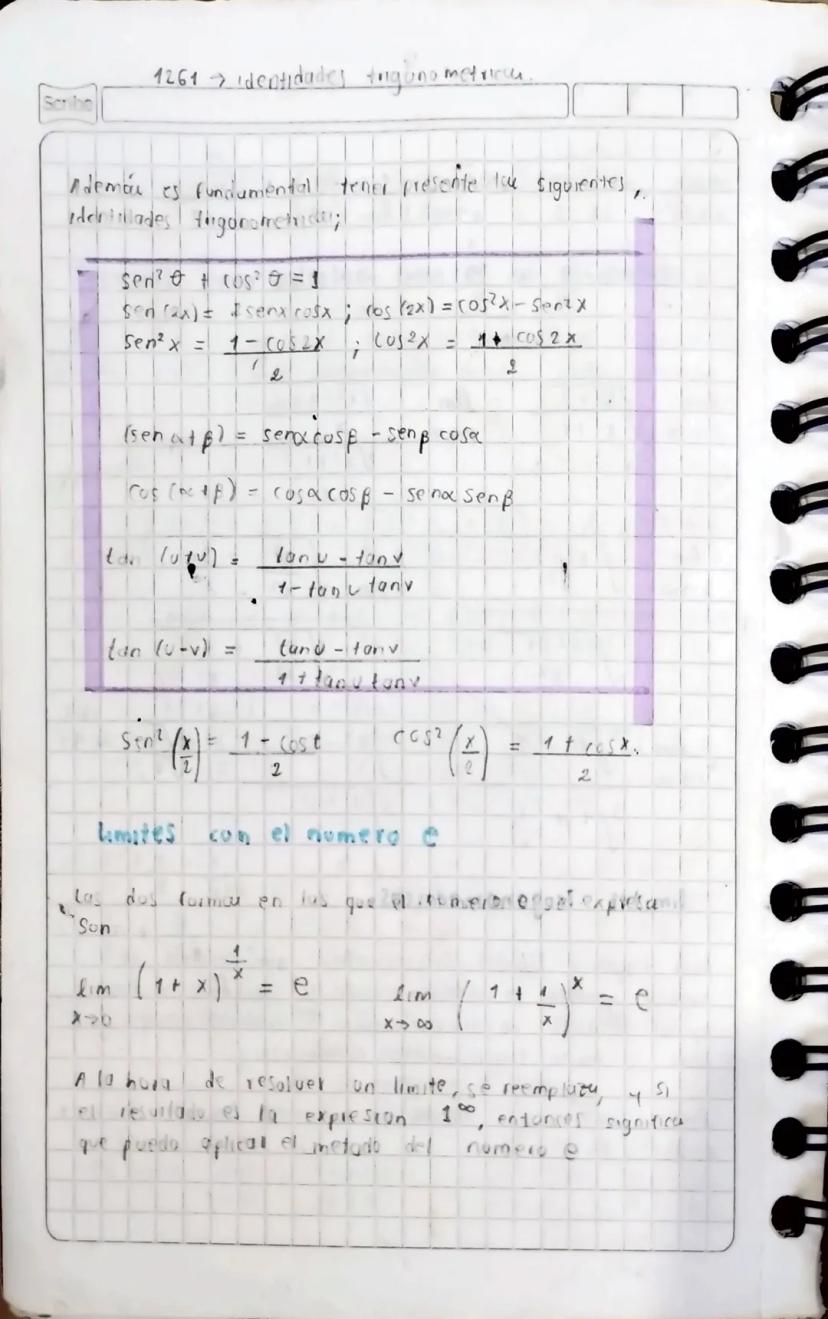 1261 → identidades trigonometricas.
Scribe
Además es fundamental tener presente las siguientes,
identidades trigonometricas;
sen² θ + cos² θ = 1
sen (2x) = 2senx cosx ; cos (2x) = cos²x - sen²x
sen² x = (1 - cos2x)/2 ; cos²x = (1 + cos 2x)/2
(sen α + β) = senα cosβ - senβ cosα
cos (α + β) = cosα cosβ - senα senβ
tan (u+v) = (tan u - tan v)/(1 - tan u tan v)
tan (u-v) = (tan u - tan v)/(1 + tan u tan v)
Sen² (x/2) = (1 - cos t)/2 cos² (x/2) = (1 + cosx.)/2
Limites con el numero e
Las dos formas en las que el numero e expresa
Son
lim x→0 (1 + x)^(1/x) = e lim x→∞ (1 + 1/x)^x = e
A la hora de resolver un limite, se reemplaza, y si
el resultado es la expresion 1^∞, entonces significa
que puedo aplicar el metodo del numero e